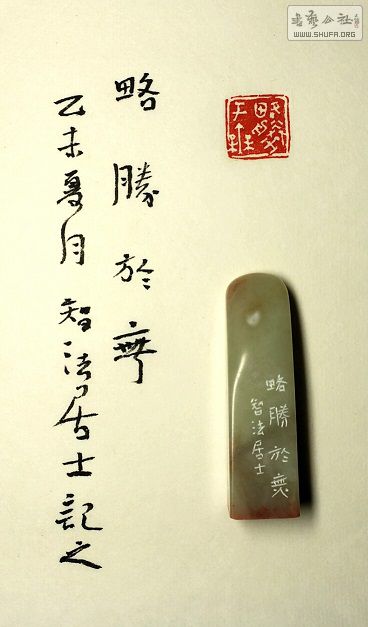 書藝公社
WWW.SHUFA.ORG
略勝於無
乙未夏月智法居士記之
略勝於無
智法居士